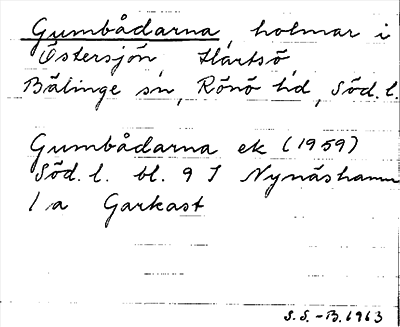 Gumbådarna, holmar i
Östersjön, Hartsö,
Bälinge sn, Rönö hd, Söd. l.
Gumbådarna ek (1959)
Söd. l. bl. 9 I Nynäshamn
1 a Garkast
S. S. - B. 1963